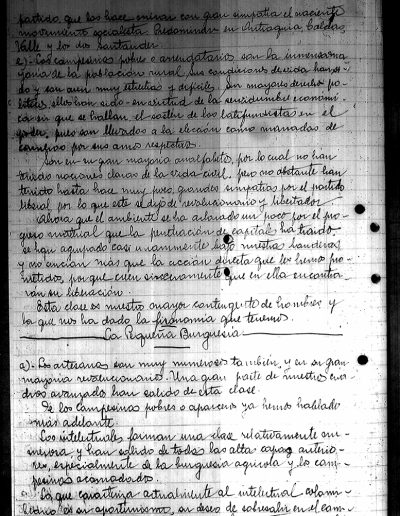 partido, que los hace mirar con gran simpatía el naciente
movimiento socialista. Predominan en Antioquia, Caldas,
Valle y los dos Santander.
e).- Los campesinos pobres o arrendatarios son la inmensa ma-
yoría de la población rural. Sus condiciones de vida han si-
do y son aun muy estrechas y difíciles. Sin mayores derechos po-
líticos, ellos han sido - en virtud de la servidumbre económi-
ca en que se hallan, el sostén de los latifundistas en el
poder, pues son llevados a la elección como manadas de
carneros por sus amos respectivos.
Son en su gran mayoría analfabetos, por lo cual no han
tenido nociones claras de la vida civil, pero no obstante han
tenido hasta hace muy poco, grandes simpatías por el partido
liberal por lo que este se dejó de revolucionario y libertador.
Ahora que el ambiente se ha aclarado un poco por el pro-
greso material que la penetración de capitales ha traído,
se han agrupado casi unanimemente bajo nuestra bandera
y no ansían más que la acción directa que les hemos pro-
metido, porque creen sinceramente que en ella encontra-
rán su liberación.
Esta clase es nuestro mayor contingente de hombres y
la que nos ha dado la fisonomía que tenemos.
La Pequeña Burguesía
a).- Los artesanos son muy numerosos también, y en su gran
mayoría revolucionarios. Una gran parte de nuestros cua-
dros avanzados han salido de esta clase.
De los campesinos pobres o aparceros ya hemos hablado
más adelante.
Los intelectuales forman una clase relativamente nu-
merosa, y han salido de todas las altas capas anterio-
res, especialmente de la burguesía agrícola y los cam-
pesinos acomodados.
Lo que caracteriza actualmente al intelectual colom-
biano es su oportunismo, su deseo de sobresalir en el cam-